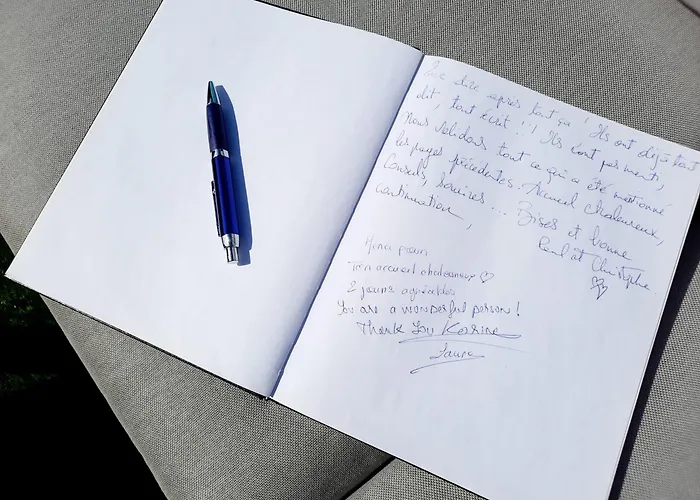 Que dire après tout ça ! Ils ont déjà tout
dit, tout écrit !! Ils n'ont pas menti,
Nous validons tout ce qui a été mentionné
les pages précédentes. Accueil chaleureux,
Conseils, Sourires ... Bises et bonne
continuation,
Paul et Christophe
Merci pour
Ton accueil chaleureux ♡
2 jours agréables
You are a wonderful person !
Thank You Korine
Laura